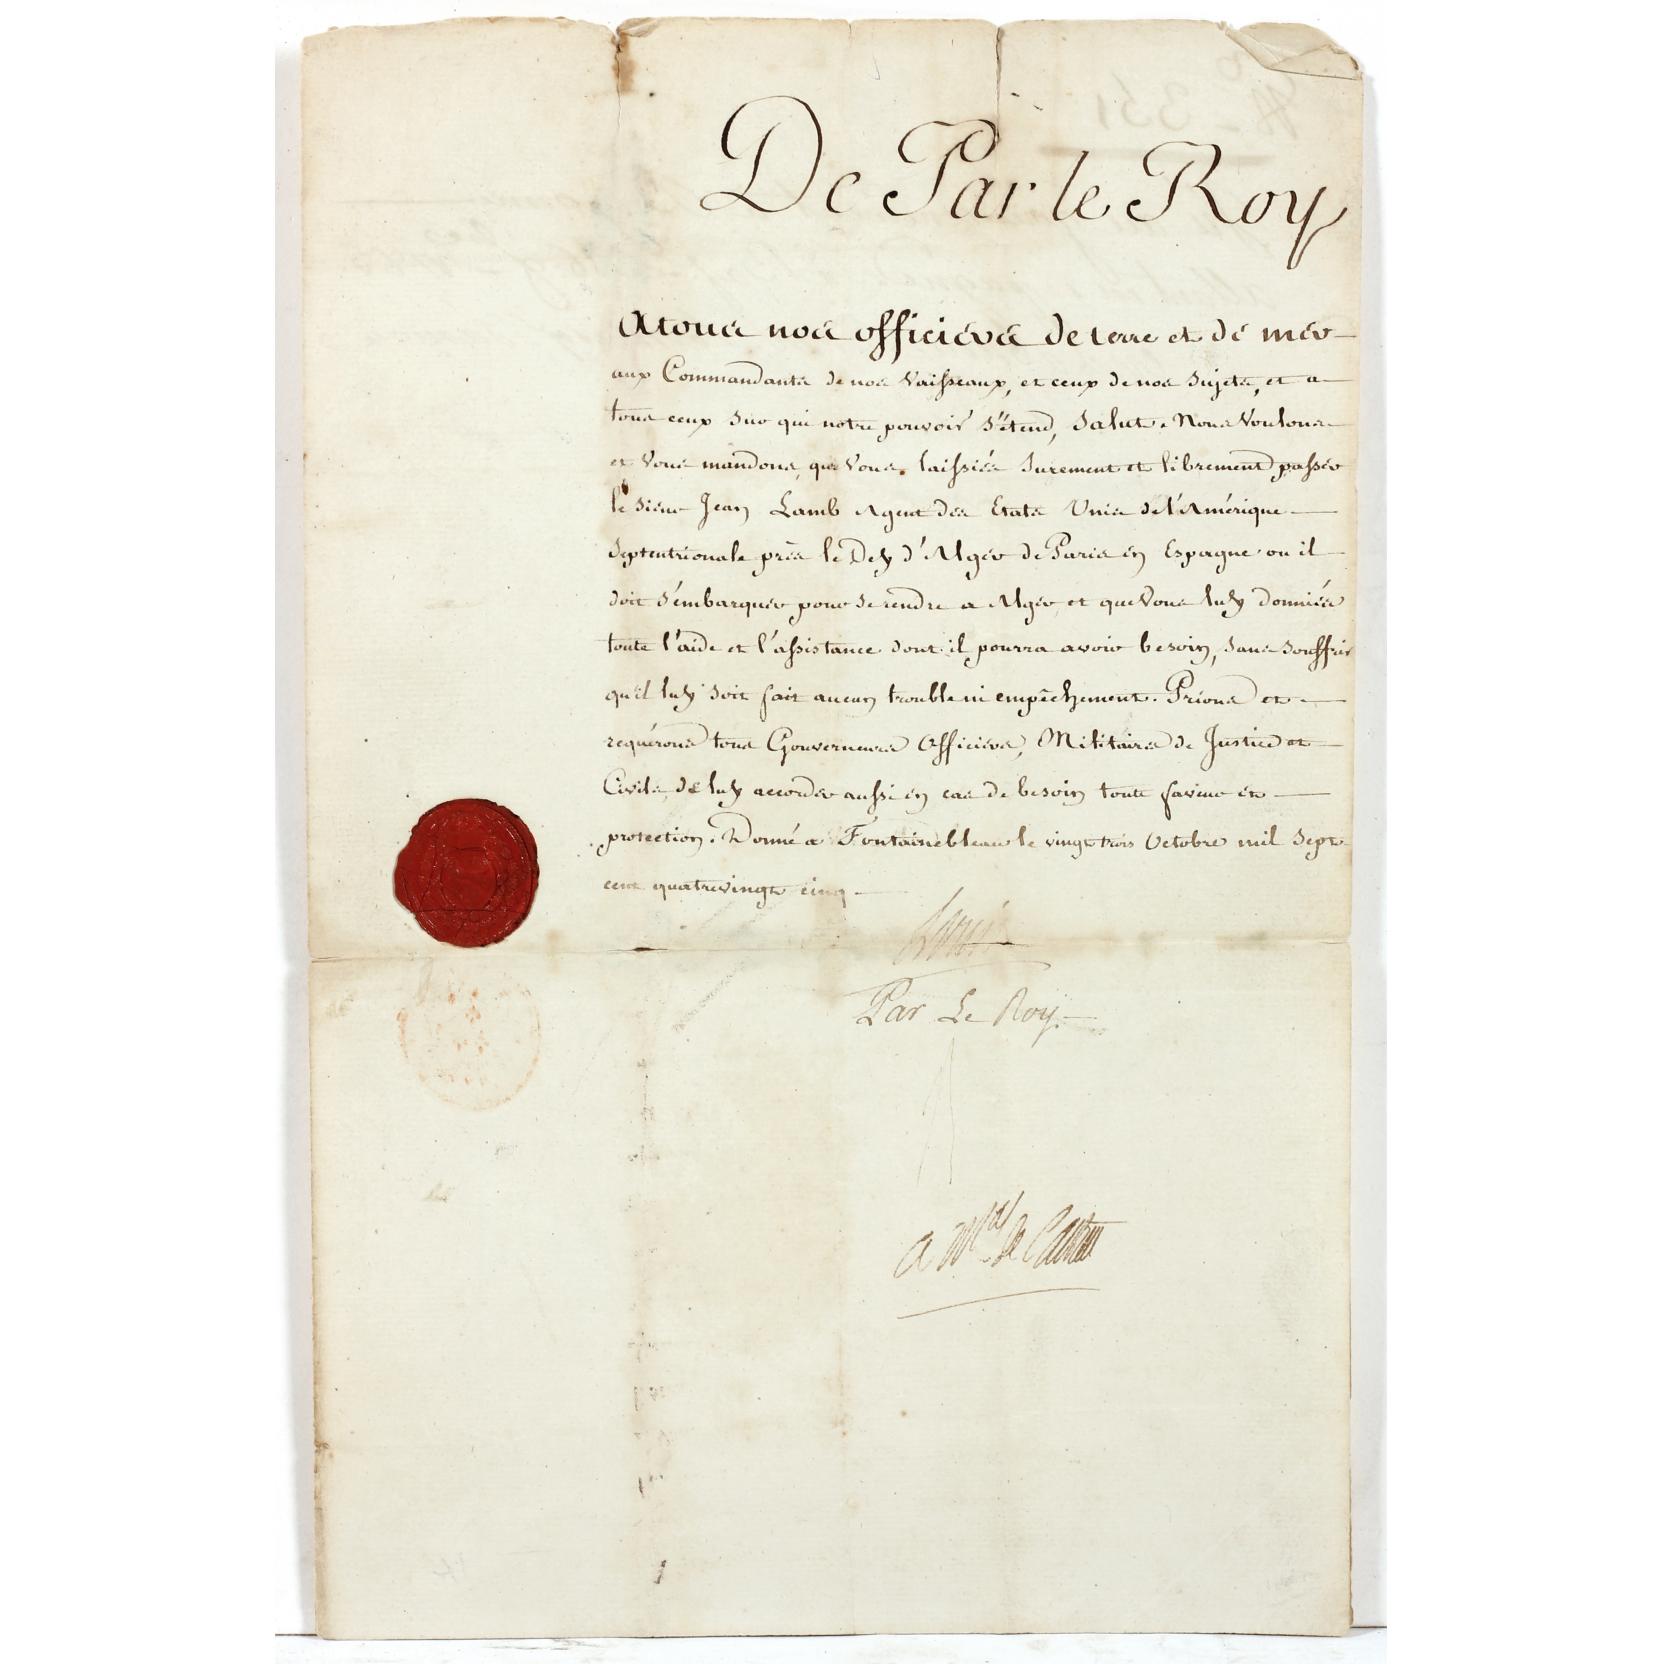 De Par le Roy
A tous nos officiers de terre et de mer
aux Commandants de nos Vaisseaux, et ceux de nos Sujets, et a
tous ceux sur qui notre pouvoir s'étend, Salut. Nous Voulons
et Vous mandons que Vous laissiés surement et librement passer
le Sieur Jean Lamb Agent des Etats Unis de l'Amérique
Septentrionale près le Dey d'Alger de Paris en Espagne ou il
doit s'embarquer pour se rendre a Alger, et que Vous luy donniés
toute l'aide et l'assistance dont il pourra avoir besoin, sans souffrir
qu'il luy soit fait aucun trouble ni empêchement. Prions et
requérons tous Gouverneurs Officiers, Militaires de Justice et
Civils, de luy accorder aussi en cas de besoin toute faveur et
protection. Donné a Fontainebleau le vingt trois Octobre mil Sept
cent quatrevingt cinq
Louis
Par Le Roy
a Mal de Castries